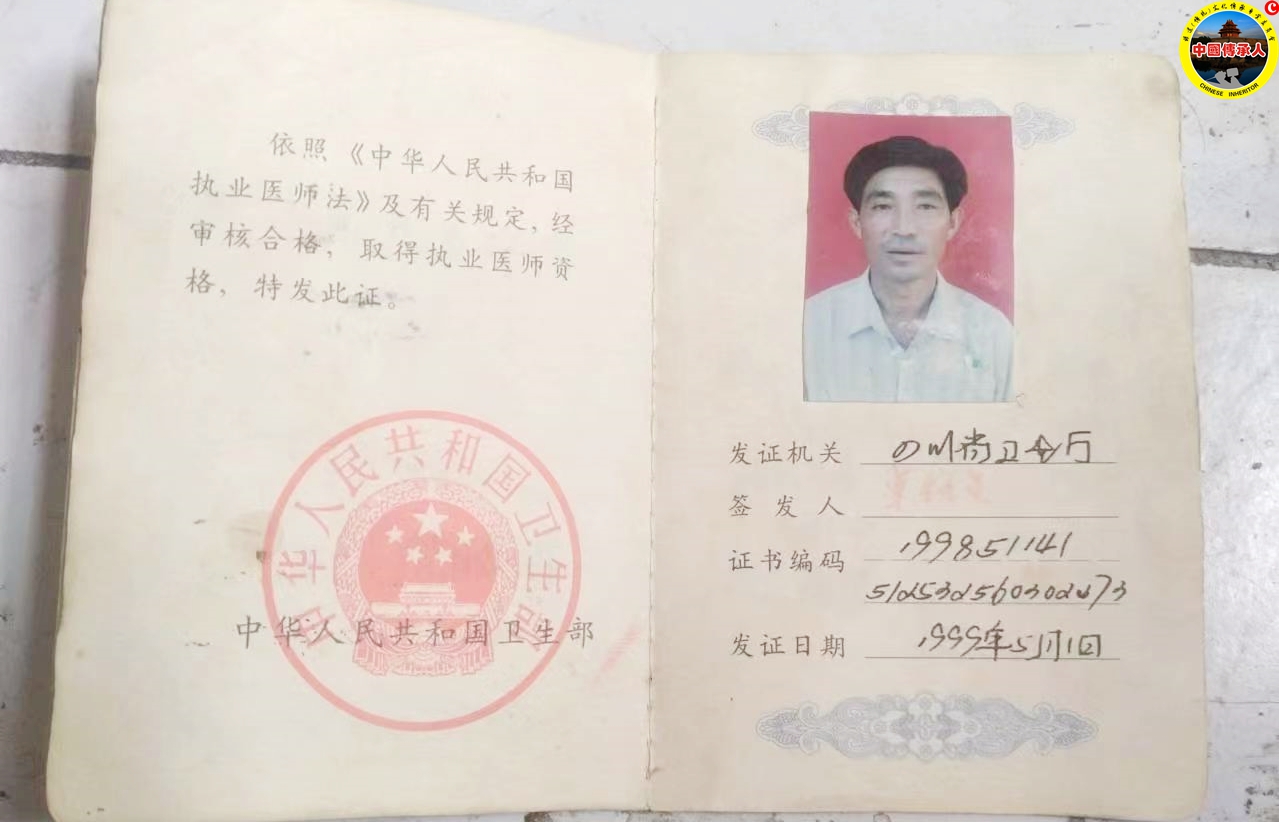 依照《中华人民共和国
执业医师法》及有关规定，经
审核合格，取得执业医师资
格，特发此证。
中华人民共和国卫生部
中华人民共和国卫生部
中國傳承人
CHINESE INHERITOR
发证机关 四川省卫生厅
签发人
证书编码 199851141
512532560302473
发证日期 1999年5月1日